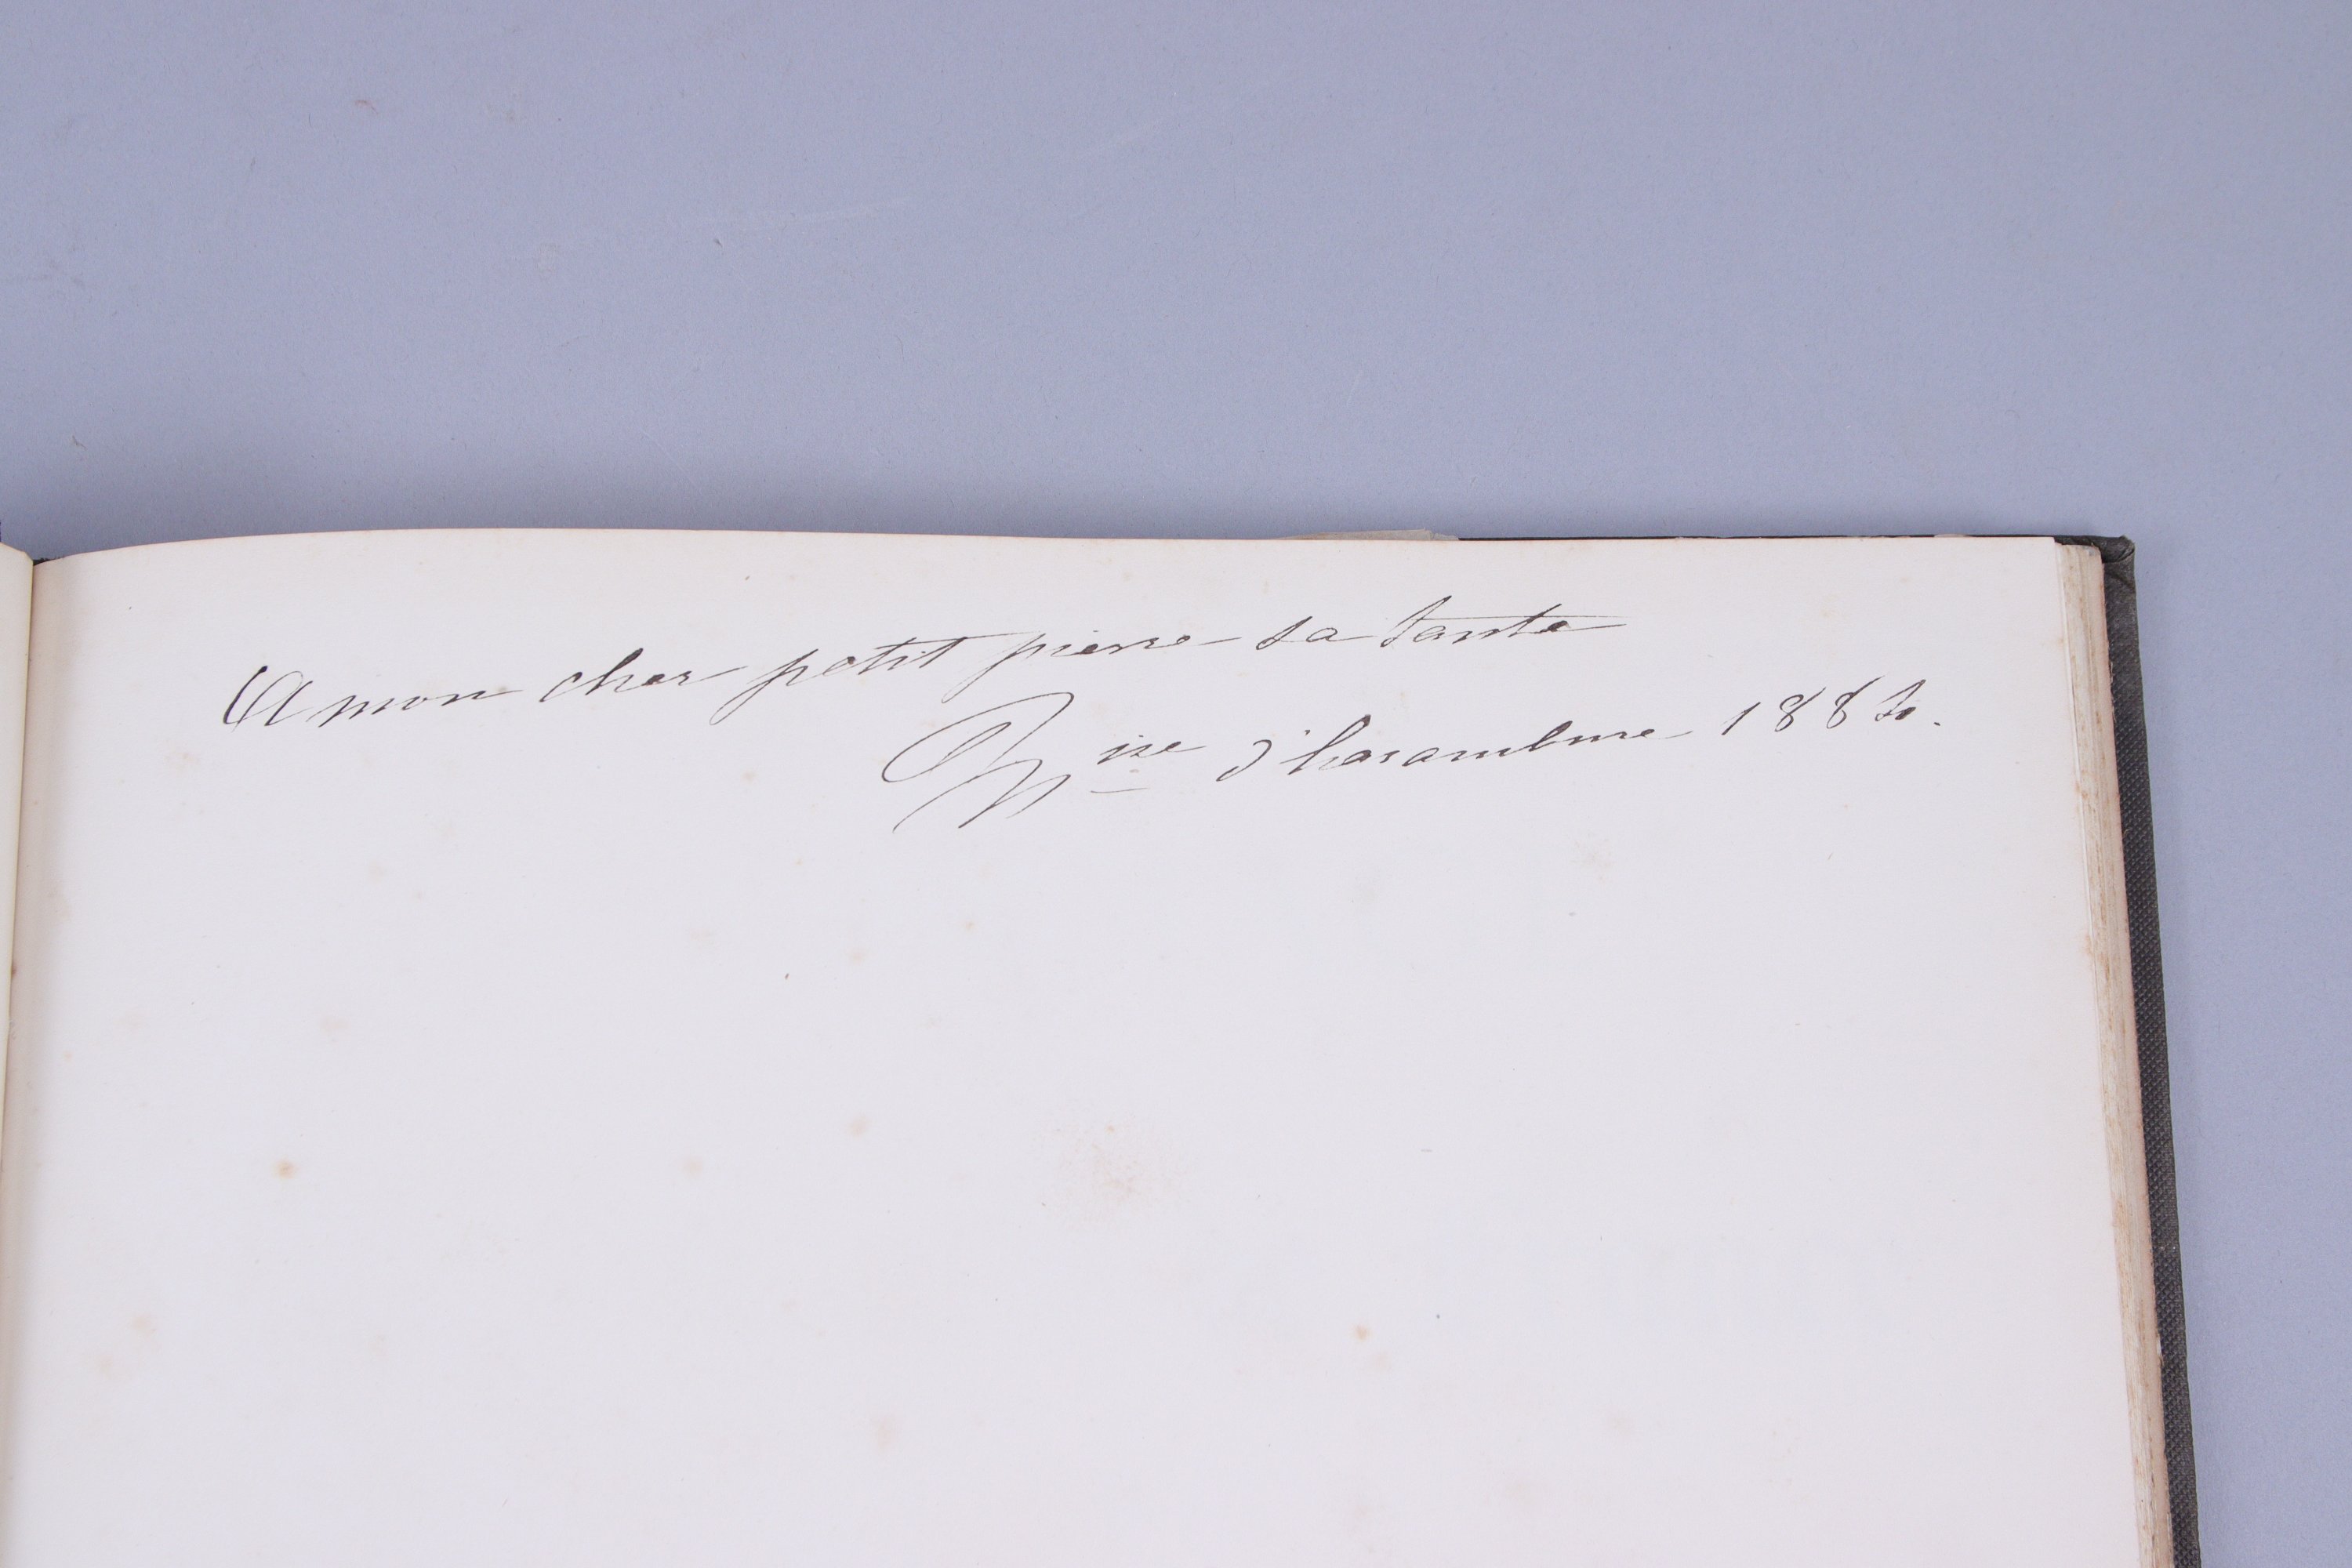 A mon cher petit pierre sa tante
Mise d'harambure 188